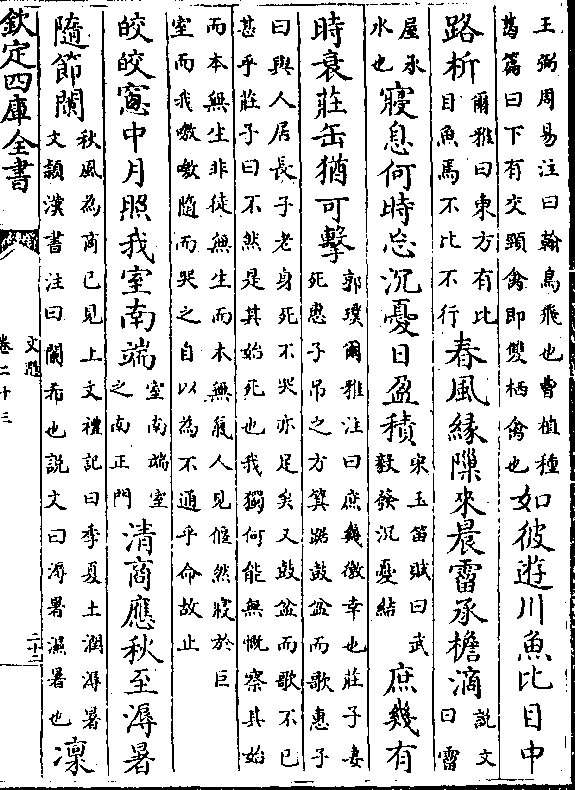 王弼周易注曰翰鳥飛也曹植種
葛篇曰下有交頸禽即雙栖禽也
如彼遊川魚比目中
路析
爾雅曰東方有比
目魚焉不比不行
春風縁隟來晨霤承檐滴
説文
曰霤
屋承
水也
寢息何時忘沉憂日盈積
宋玉笛賦曰武
毅發沉憂結
庶幾有
時衰莊缶猶可擊
郭璞爾雅注曰庶幾徼幸也莊子妻
死惠子吊之方箕踞鼓盆而歌惠子
曰與人居長子老身死不哭亦足矣又鼓盆而歌不已
甚乎莊子曰不然是其始死也我獨何能無慨察其始
而本無生非徒無生而本無氣人見偃然寢於巨
室而我噭噭隨而哭之自以為不通乎命故止
皎皎窻中月照我室南端
室南端室
之南正門
清商應秋至溽暑
隨節闌
秋風為商已見上文禮記曰季夏土潤溽暑
文頴漢書注曰闌希也説文曰溽暑濕暑也
凜
欽定四庫全書
文選
卷二十三
二十二